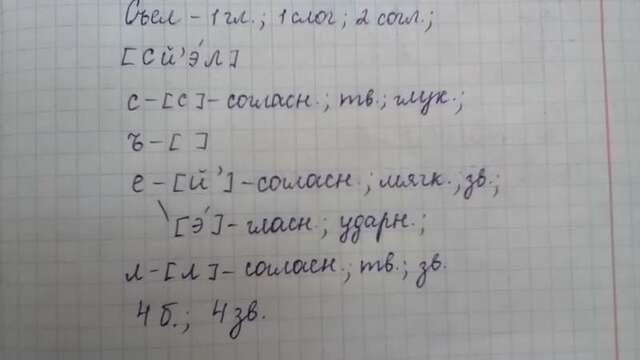 Съел - 1 гл.; 1 слог; 2 согл.;
[сй'э́л]
с - [с] - согласн.; тв.; глух.;
ъ - [ ]
е - [й'] - согласн.; мягк.; зв.;
\ [э́] - гласн.; ударн.;
л - [л] - согласн.; тв.; зв.
4 б.; 4 зв.